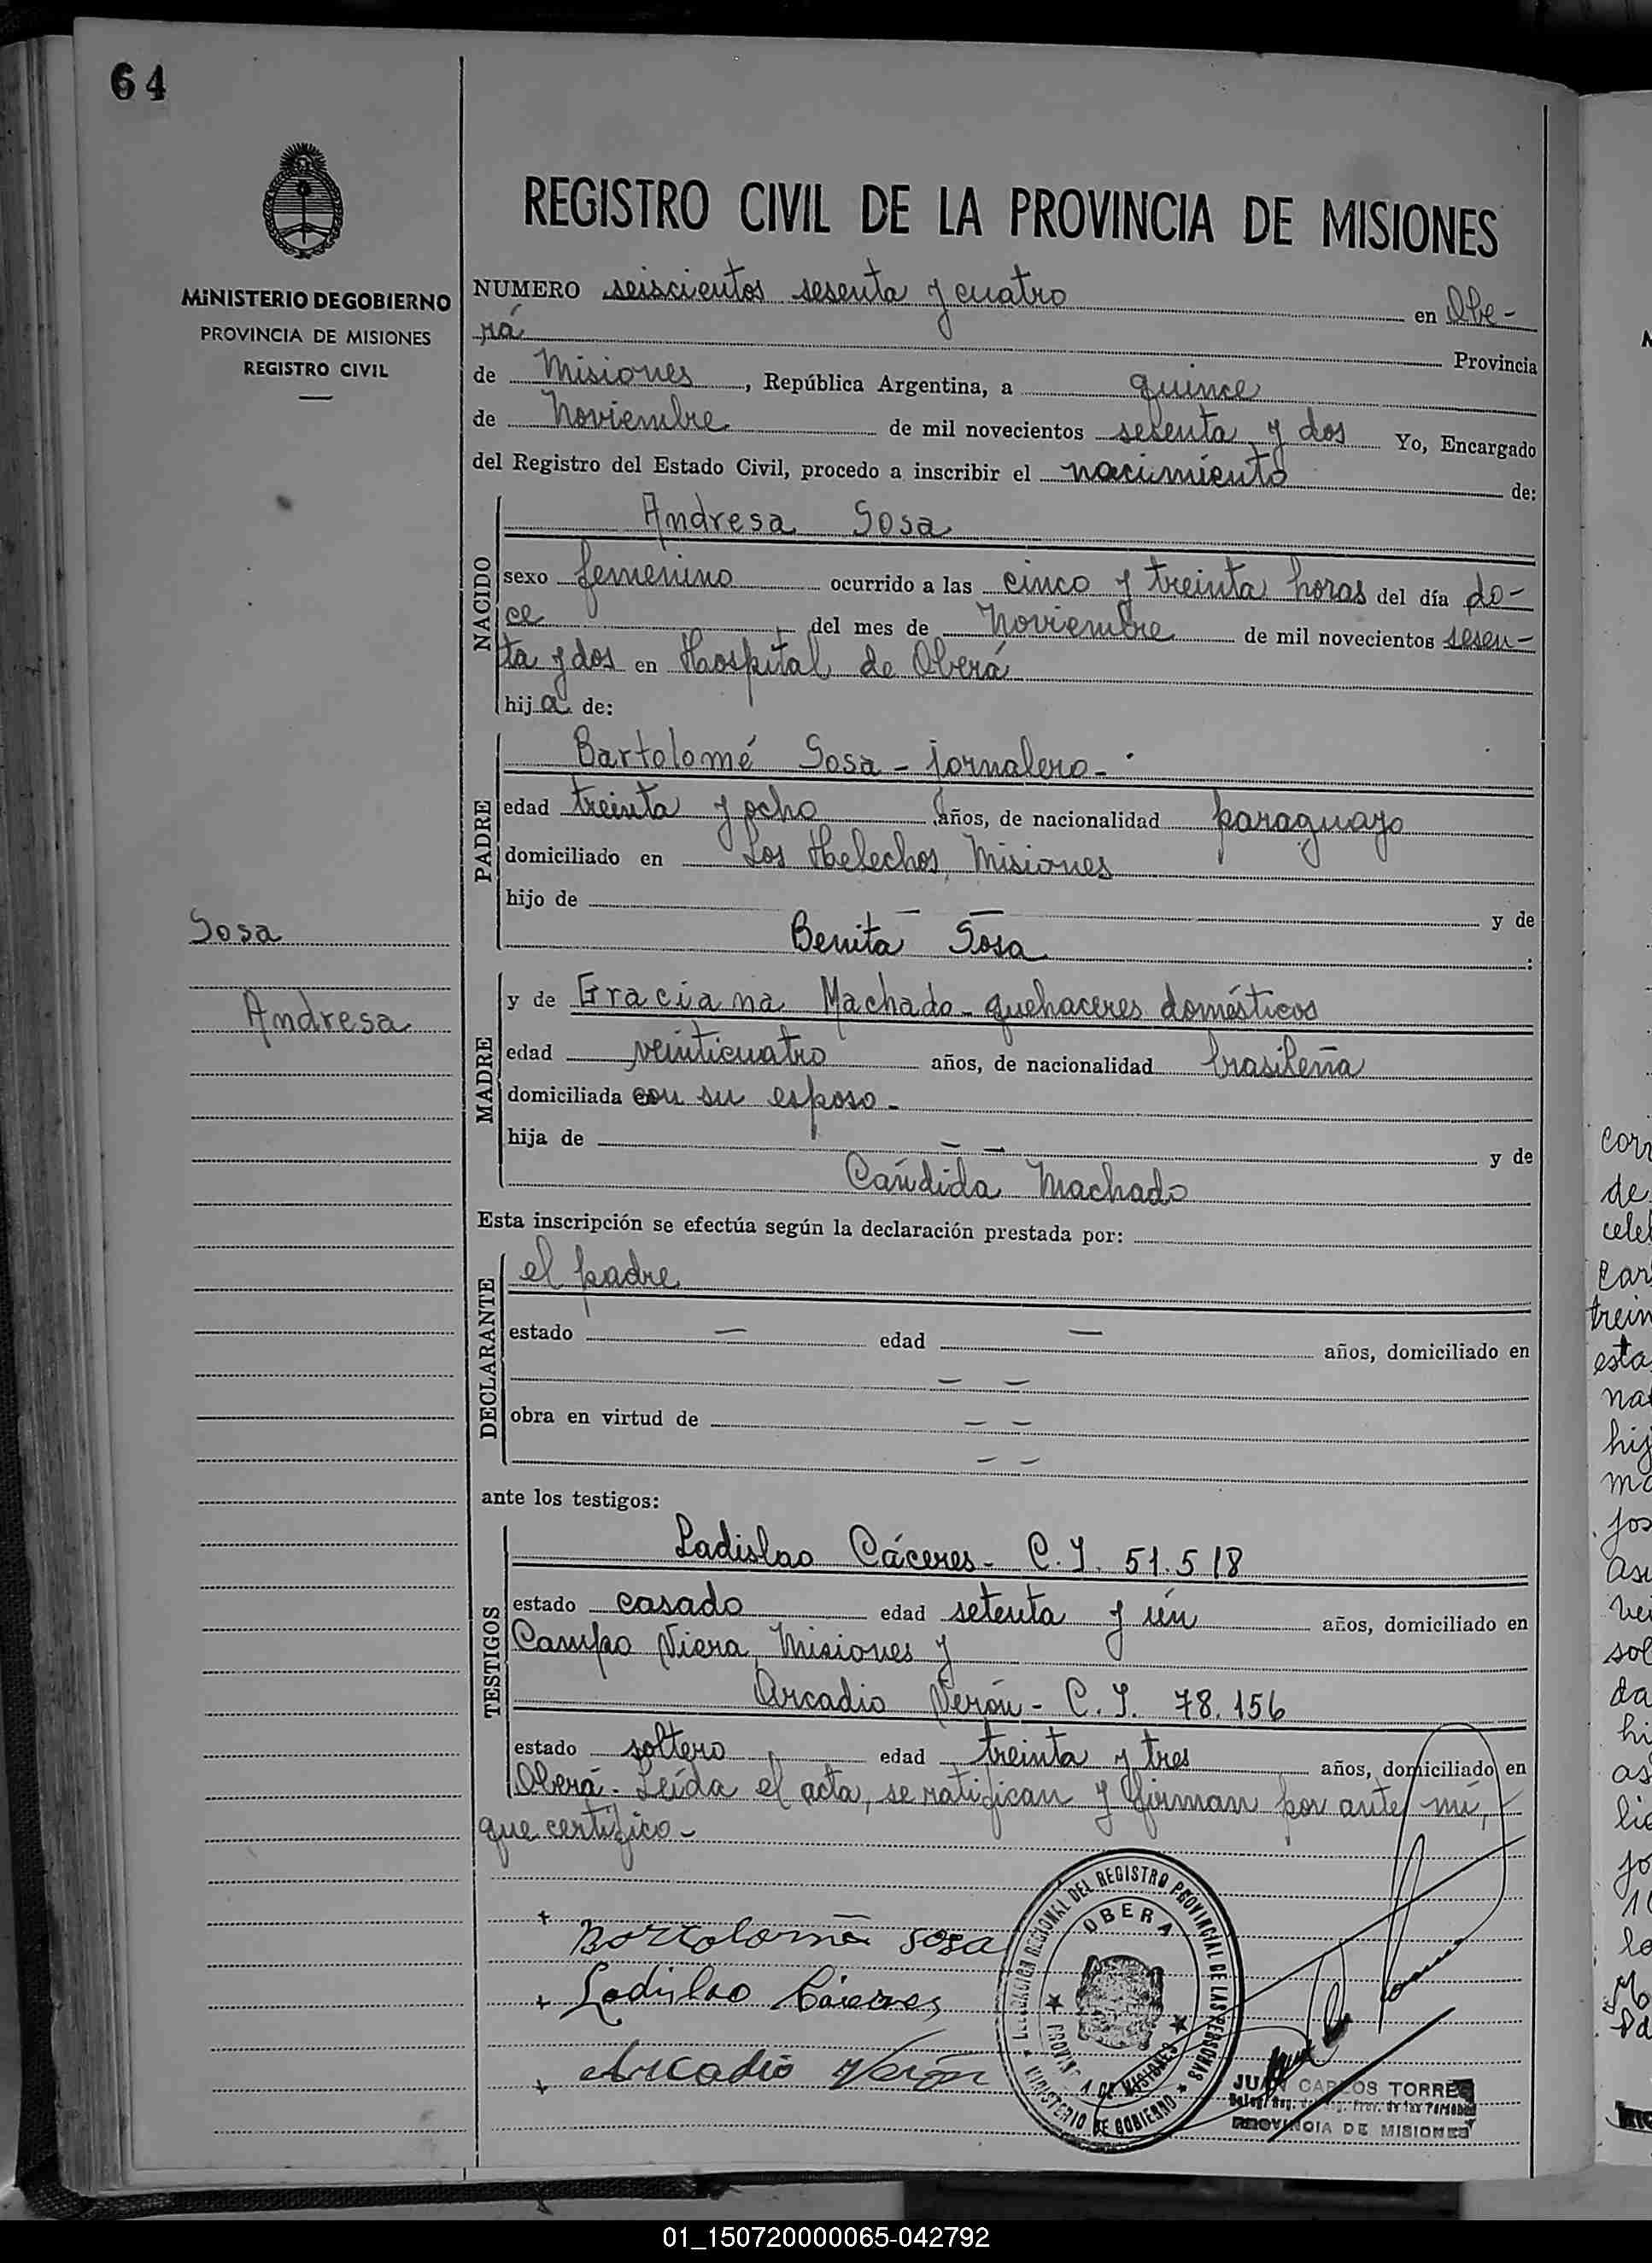 64
MINISTERIO DE GOBIERNO
PROVINCIA DE MISIONES
REGISTRO CIVIL
Sosa
Andresa
REGISTRO CIVIL DE LA PROVINCIA DE MISIONES
NUMERO seiscientos sesenta y cuatro en Obe-
rá Provincia
de Misiones, República Argentina, a quince
de Noviembre de mil novecientos sesenta y dos Yo, Encargado
del Registro del Estado Civil, procedo a inscribir el nacimiento de:
NACIDO
Andresa Sosa
sexo femenino ocurrido a las cinco y treinta horas del día do-
ce del mes de Noviembre de mil novecientos sesen-
ta y dos en Hospital de Oberá
hija de:
PADRE
Bartolomé Sosa - jornalero -
edad treinta y ocho años, de nacionalidad paraguayo
domiciliado en Los Helechos, Misiones
hijo de — — y de
Benita Sosa :
MADRE
y de Graciana Machado - quehaceres domésticos
edad veinticuatro años, de nacionalidad brasileña
domiciliada con su esposo -
hija de — — y de
Cándida Machado
Esta inscripción se efectúa según la declaración prestada por:
DECLARANTE
el padre
estado — edad — años, domiciliado en
— —
obra en virtud de — —
— —
ante los testigos:
TESTIGOS
Ladislao Cáceres - C.I. 51.518
estado casado edad setenta y ún años, domiciliado en
Campo Viera, Misiones y
Arcadio Verón - C.I. 78.156
estado soltero edad treinta y tres años, domiciliado en
Oberá - Leída el acta, se ratifican y firman por ante mí,
que certifico -
+ Bartolomé Sosa
+ Ladislao Cáceres
+ Arcadio Verón
DELEGACION REGIONAL DEL REGISTRO PROVINCIAL DE LAS PERSONAS
OBERA
PROVINCIA DE MISIONES
MINISTERIO DE GOBIERNO
JUAN CARLOS TORRES
PROVINCIA DE MISIONES
corr
de
cele
trein
esta
hij
sol
da
hi
as
01_150720000065-042792